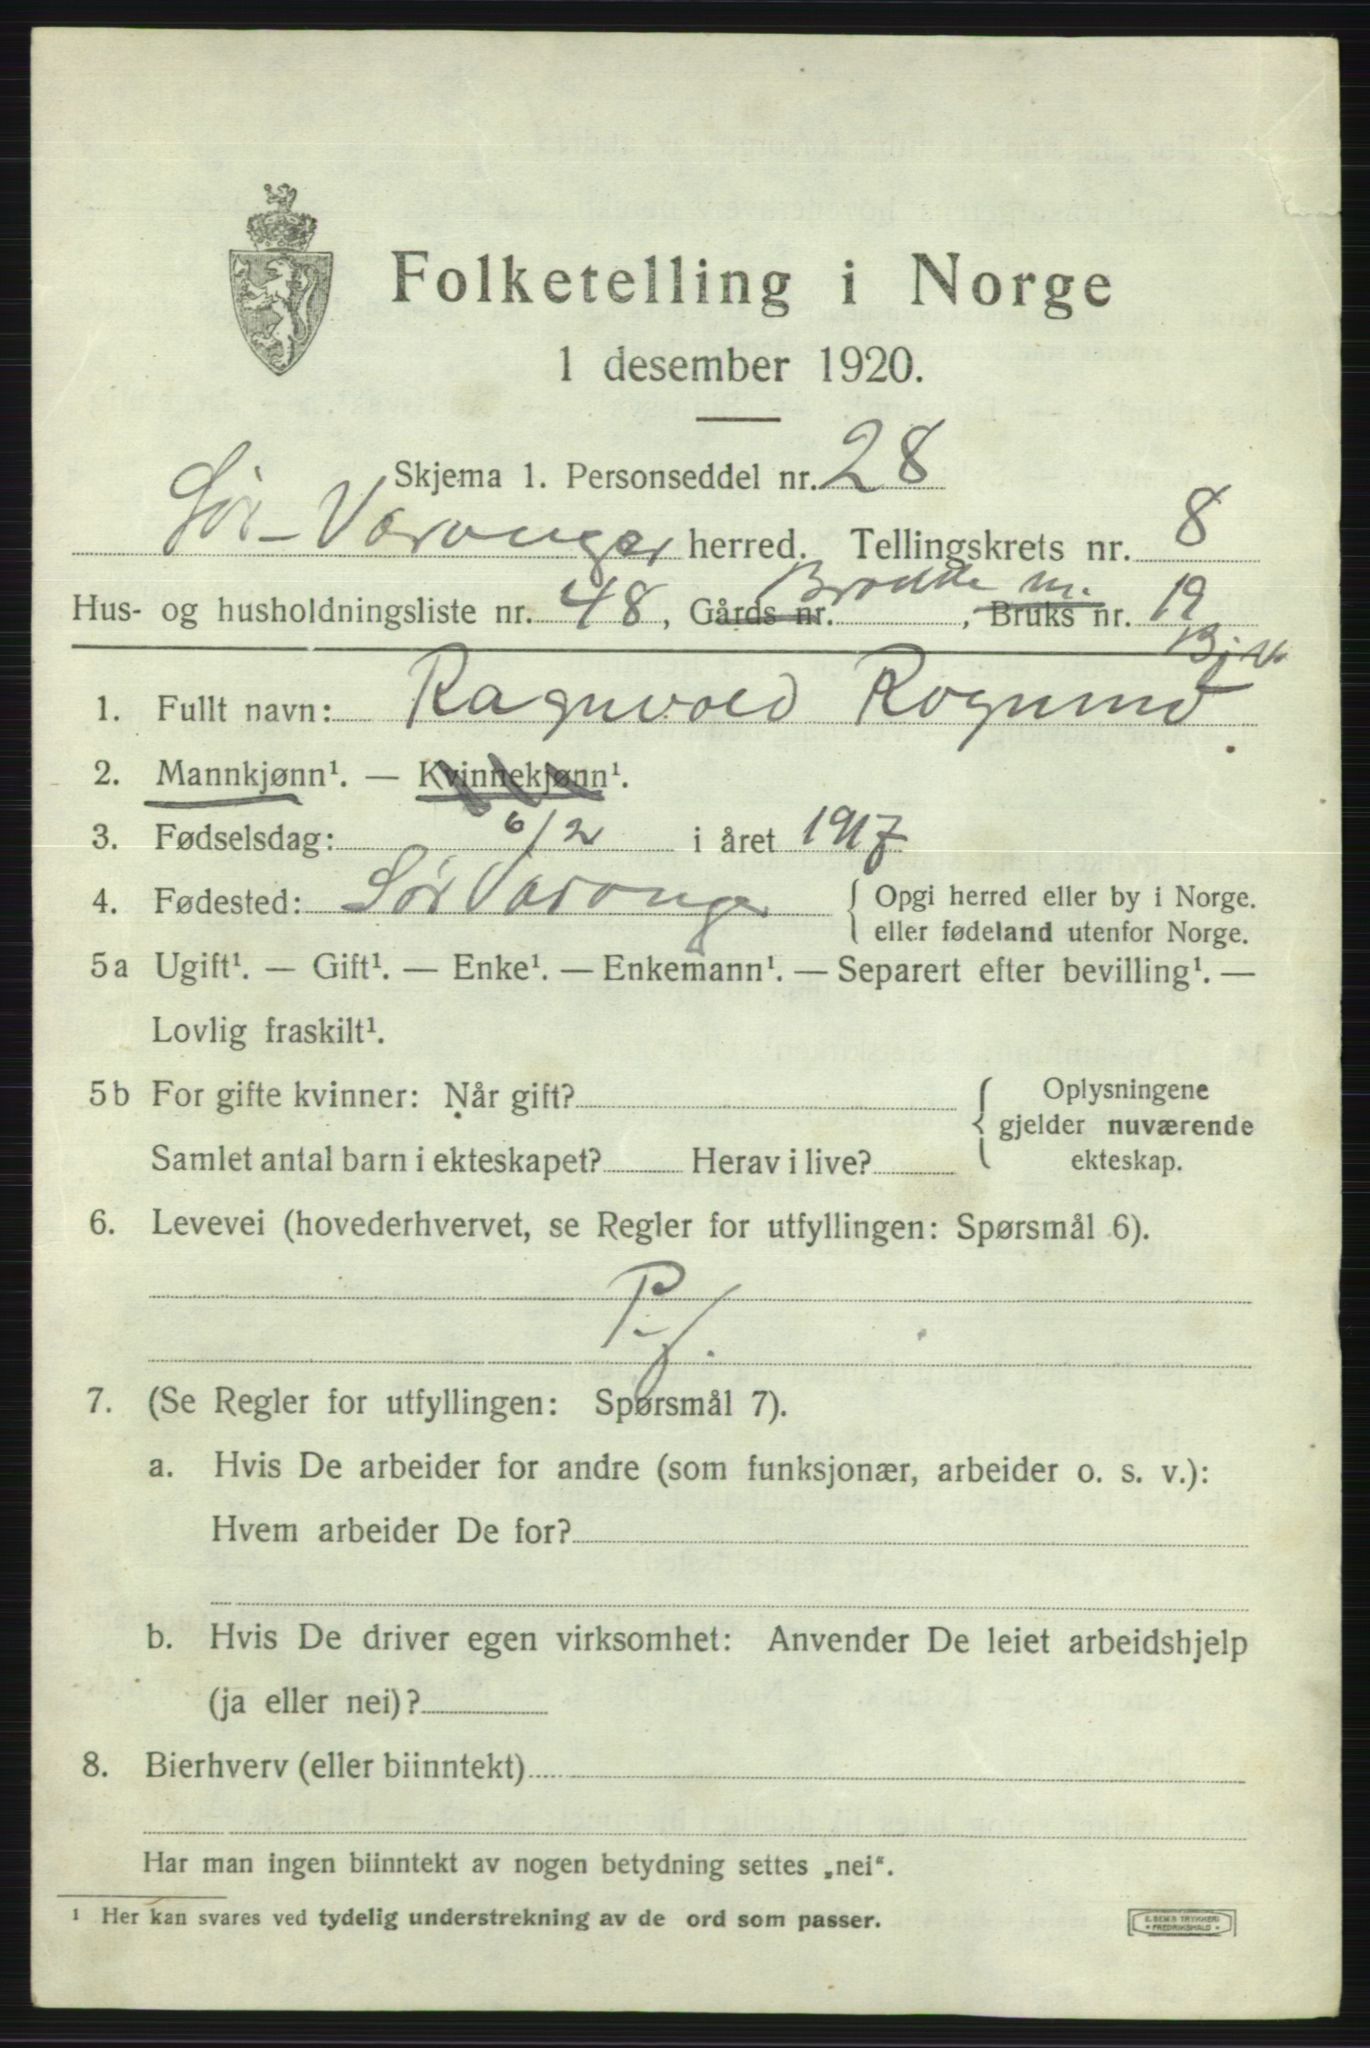 Folketelling i Norge
1 desember 1920.
Skjema 1. Personseddel nr. 28
Sør-Varanger herred. Tellingskrets nr. 8
Hus- og husholdningsliste nr. 48, Gårds nr. , Bruks nr. 19
1. Fullt navn: Ragnvald
2. Mannkjønn¹. — Kvinnekjønn¹.
3. Fødselsdag: 6/2 i året 1917
4. Fødested: Sør Varanger { Opgi herred eller by i Norge.
eller fødeland utenfor Norge.
5a Ugift¹. — Gift¹. — Enke¹. — Enkemann¹. — Separert efter bevilling¹. —
Lovlig fraskilt¹.
5b For gifte kvinner: Når gift? { Oplysningene
gjelder nuværende
Samlet antal barn i ekteskapet? Herav i live? ekteskap.
6. Levevei (hovederhvervet, se Regler for utfyllingen: Spørsmål 6).
7. (Se Regler for utfyllingen: Spørsmål 7).
a. Hvis De arbeider for andre (som funksjonær, arbeider o. s. v.):
Hvem arbeider De for?
b. Hvis De driver egen virksomhet: Anvender De leiet arbeidshjelp
(ja eller nei)?
8. Bierhverv (eller biinntekt)
Har man ingen biinntekt av nogen betydning settes „nei“.
¹ Her kan svares ved tydelig understrekning av de ord som passer.